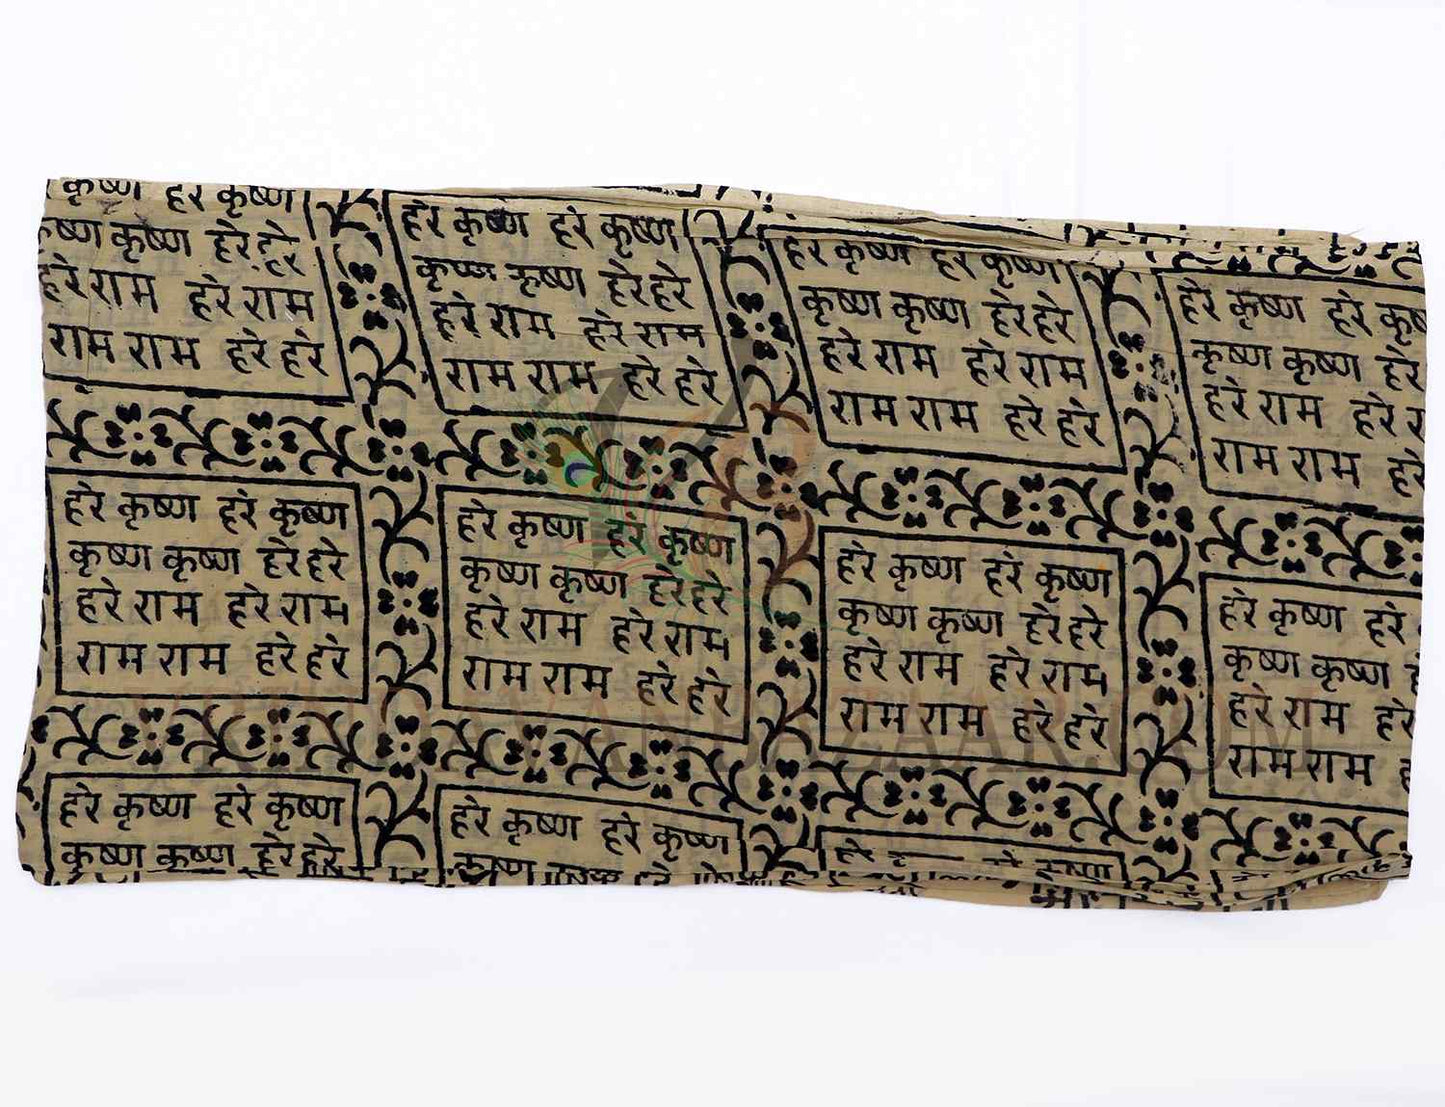 कृष्ण हरे कृष्ण
कृष्ण कृष्ण हरे हरे
हरे राम हरे राम
राम राम हरे हरे
हरे कृष्ण हरे कृष्ण
कृष्ण कृष्ण हरे हरे
हरे राम हरे राम
राम राम हरे हरे
हरे कृष्ण हरे कृष्ण
कृष्ण कृष्ण हरे हरे
हरे राम हरे राम
राम राम हरे हरे
हरे कृष्ण हरे
कृष्ण कृष्ण हरे
हरे राम हरे
राम राम हरे
हरे कृष्ण हरे कृष्ण
कृष्ण कृष्ण हरे हरे
हरे राम हरे राम
राम राम हरे हरे
हरे कृष्ण हरे कृष्ण
कृष्ण कृष्ण हरे हरे
हरे राम हरे राम
राम राम हरे हरे
हरे कृष्ण हरे कृष्ण
कृष्ण कृष्ण हरे हरे
हरे राम हरे राम
राम राम हरे हरे
हरे कृष्ण हरे
कृष्ण कृष्ण
हरे राम हरे
राम राम
हरे कृष्ण हरे कृष्ण
कृष्ण कृष्ण हरे हरे
हरे कृष्ण हरे कृष्ण
कृष्ण
VRINDAVANBAZAAR.COM